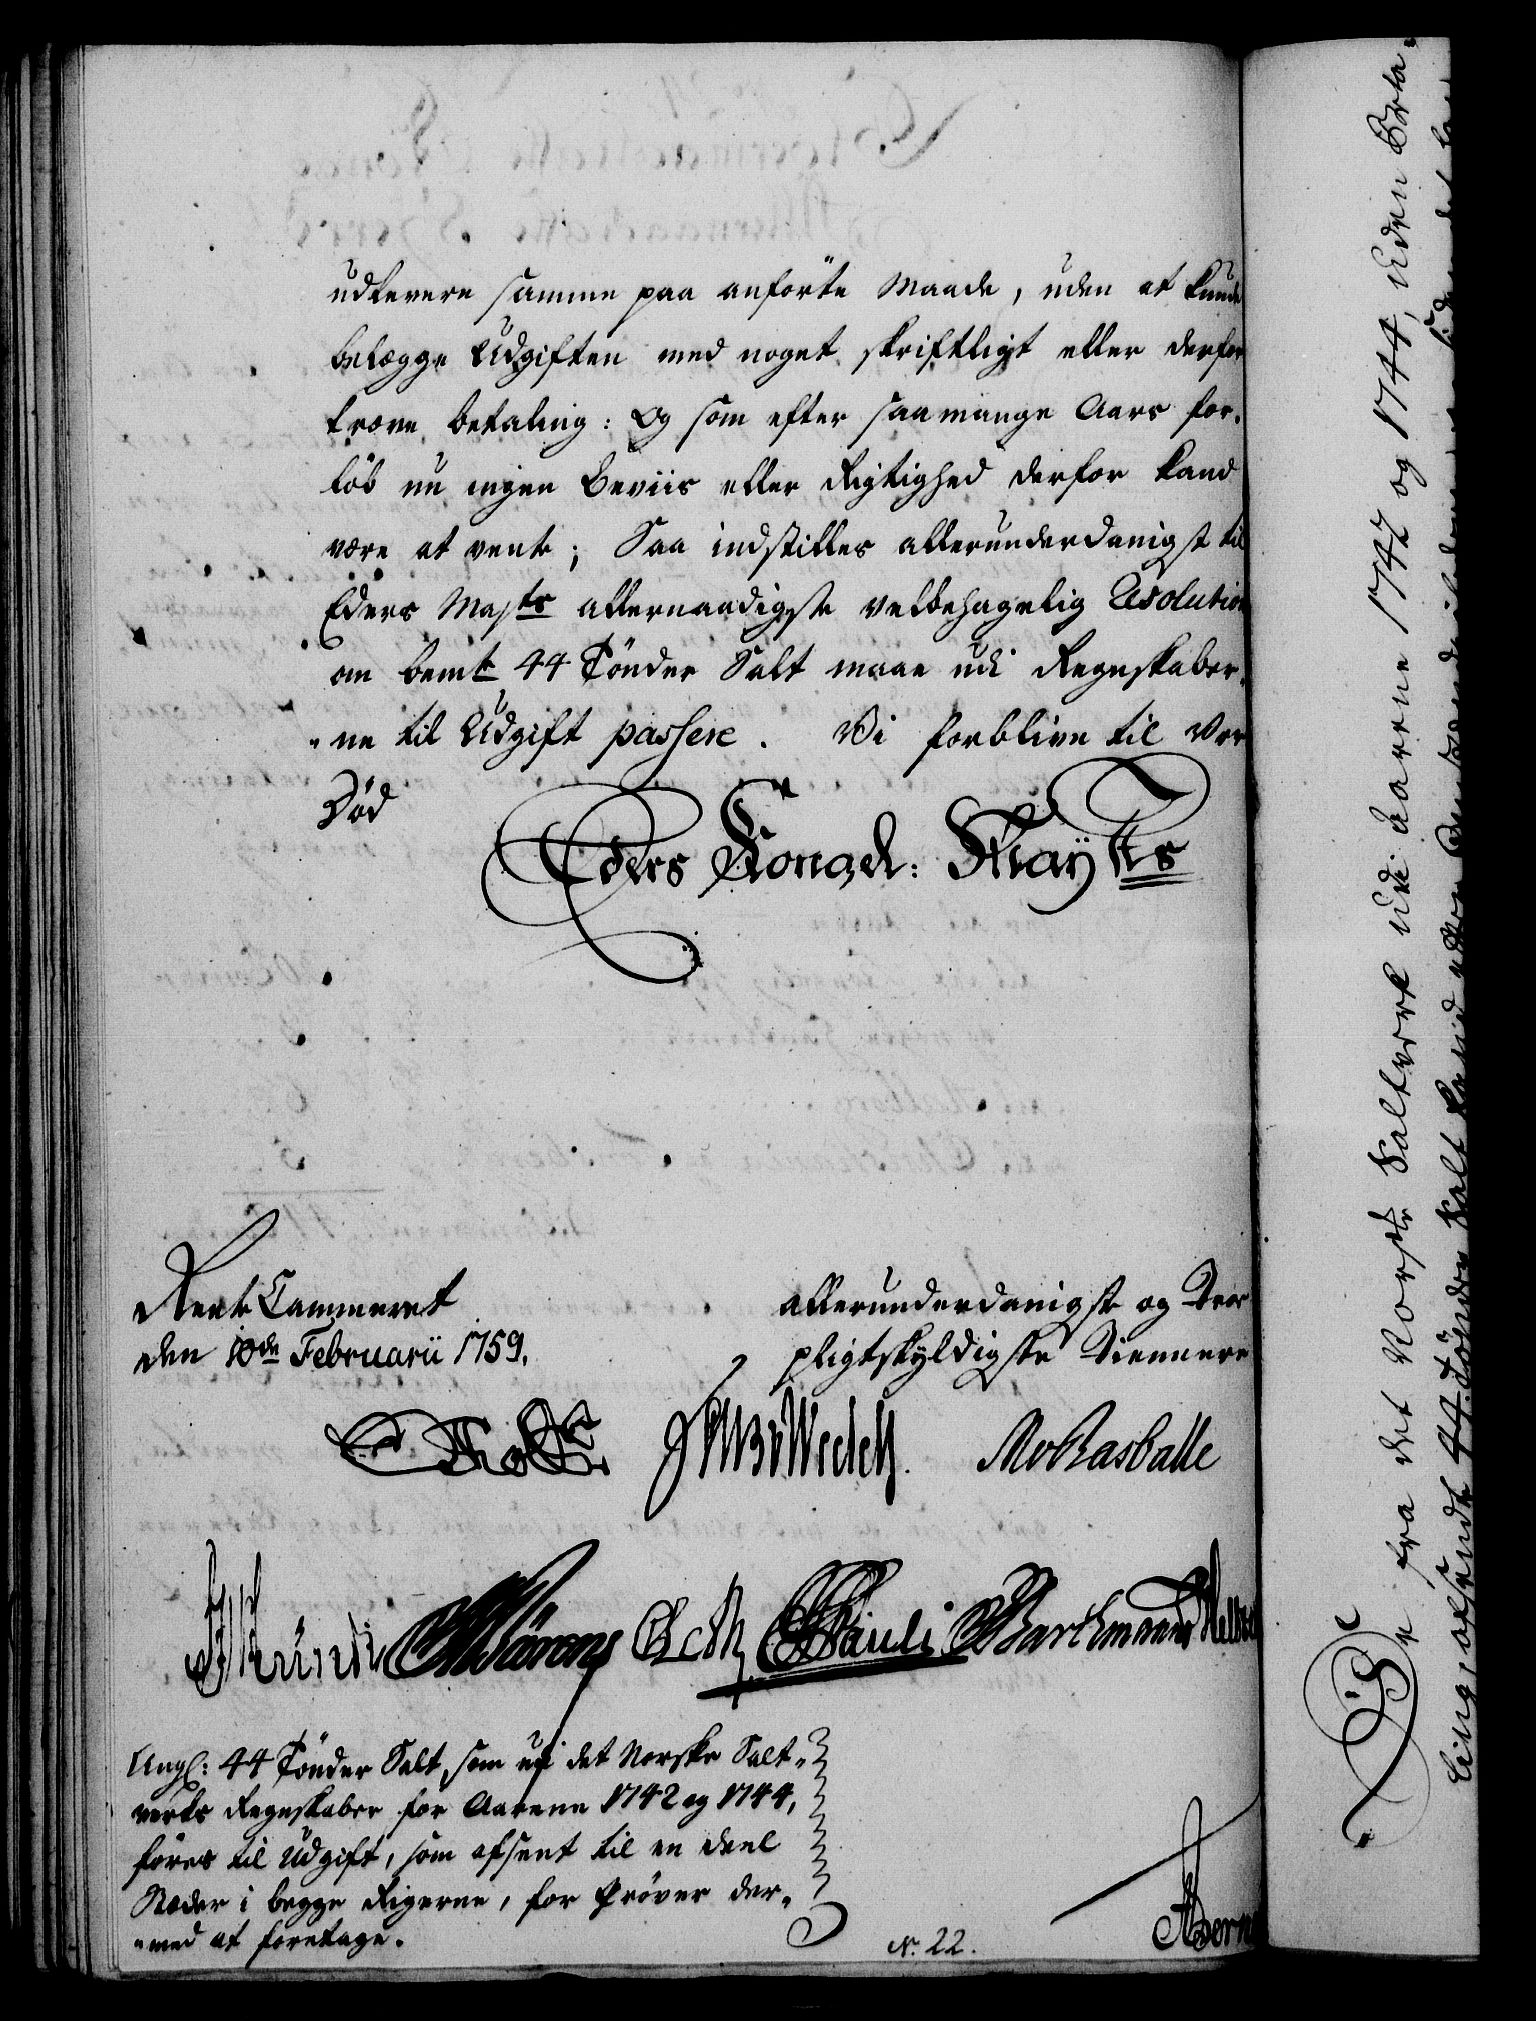 udlevere samme paa anförte Maade, uden at kunde
belægge Udgiften med noget skriftligt eller derfor
kræve betaling: Og som efter saamange Aars for-
löb nu ingen Beviis eller Rigtighed derfor kand
være at vente; Saa indstilles allerunderdanigst til
Eders Majts allernaadigste velbehagelig Resolution
om bemte 44 Tönder Salt maae udi Regnskaber-
ne til Udgift passere. Vi forblive til Vor
Död
Eders Kongel: Mayts
Rente Cammeret
den 10de Februarii 1759.
allerunderdanigste og Troe
pligtskyldigste Tiennere
Wedell.
Rasballe
Pauli Barthmann
Angl: 44 Tönder Salt, som udi det Norske Salt-
verks Regnskaber for Aarene 1742 og 1744,
föres til Udgift, som afsent til en deel
Stæder i begge Rigerne, for Pröver der-
med at foretage.
N. 22.
De fra det Norske Saltverk udi Aarene 1742 og 1744, uden Beta-
ling, afsendte 44 Tönder Salt